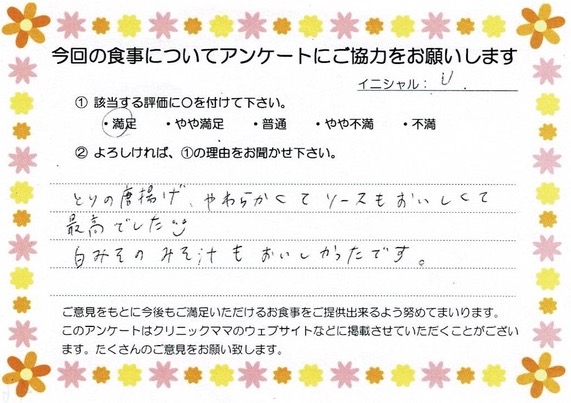 今回の食事についてアンケートにご協力をお願いします
イニシャル： U.
① 該当する評価に○を付けて下さい。
・満足 ・やや満足 ・普通 ・やや不満 ・不満
② よろしければ、①の理由をお聞かせ下さい。
とりの唐揚げ、やわらかくてソースもおいしくて
最高でした
白みそのみそ汁もおいしかったです。
ご意見をもとに今後もご満足いただけるお食事をご提供出来るよう努めてまいります。
このアンケートはクリニックママのウェブサイトなどに掲載させていただくことがござい
ます。たくさんのご意見をお願い致します。